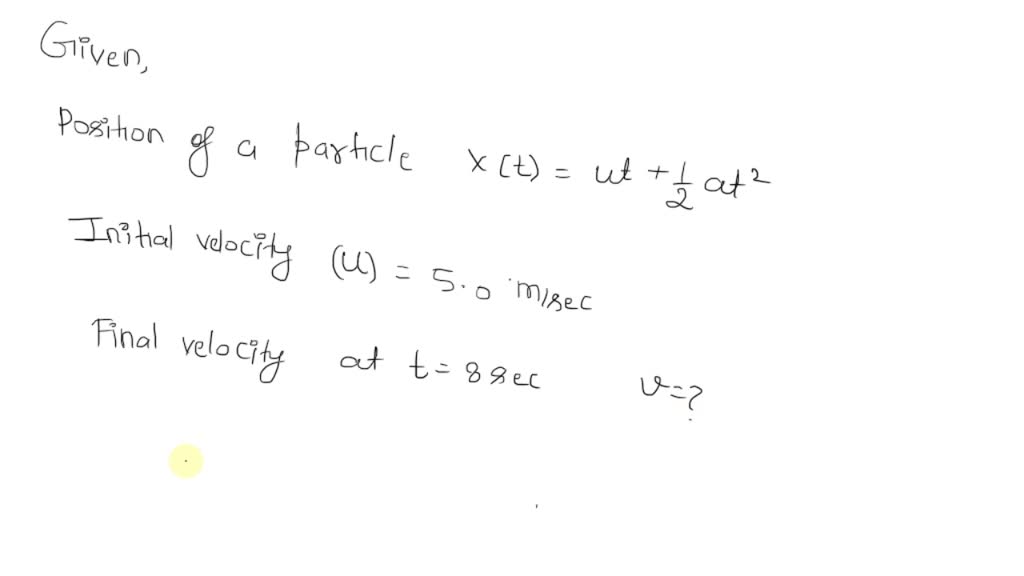 Given,
Position of a particle x(t) = ut + 1/2 at²
Initial velocity (u) = 5.0 m/sec
Final velocity at t = 8 sec v = ?